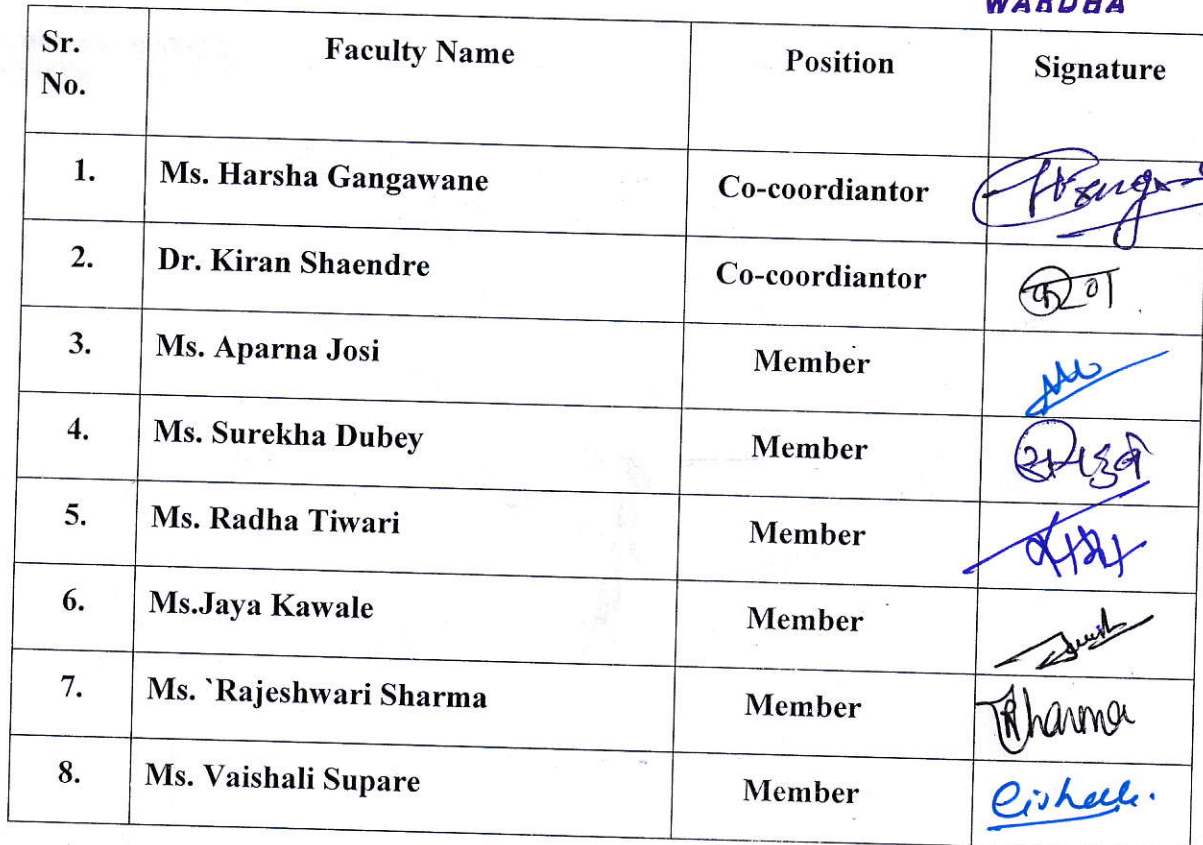 WARDHA
Sr. No. Faculty Name Position Signature
1. Ms. Harsha Gangawane Co-coordiantor
2. Dr. Kiran Shaendre Co-coordiantor
3. Ms. Aparna Josi Member
4. Ms. Surekha Dubey Member
5. Ms. Radha Tiwari Member
6. Ms.Jaya Kawale Member
7. Ms. `Rajeshwari Sharma Member Rharma
8. Ms. Vaishali Supare Member